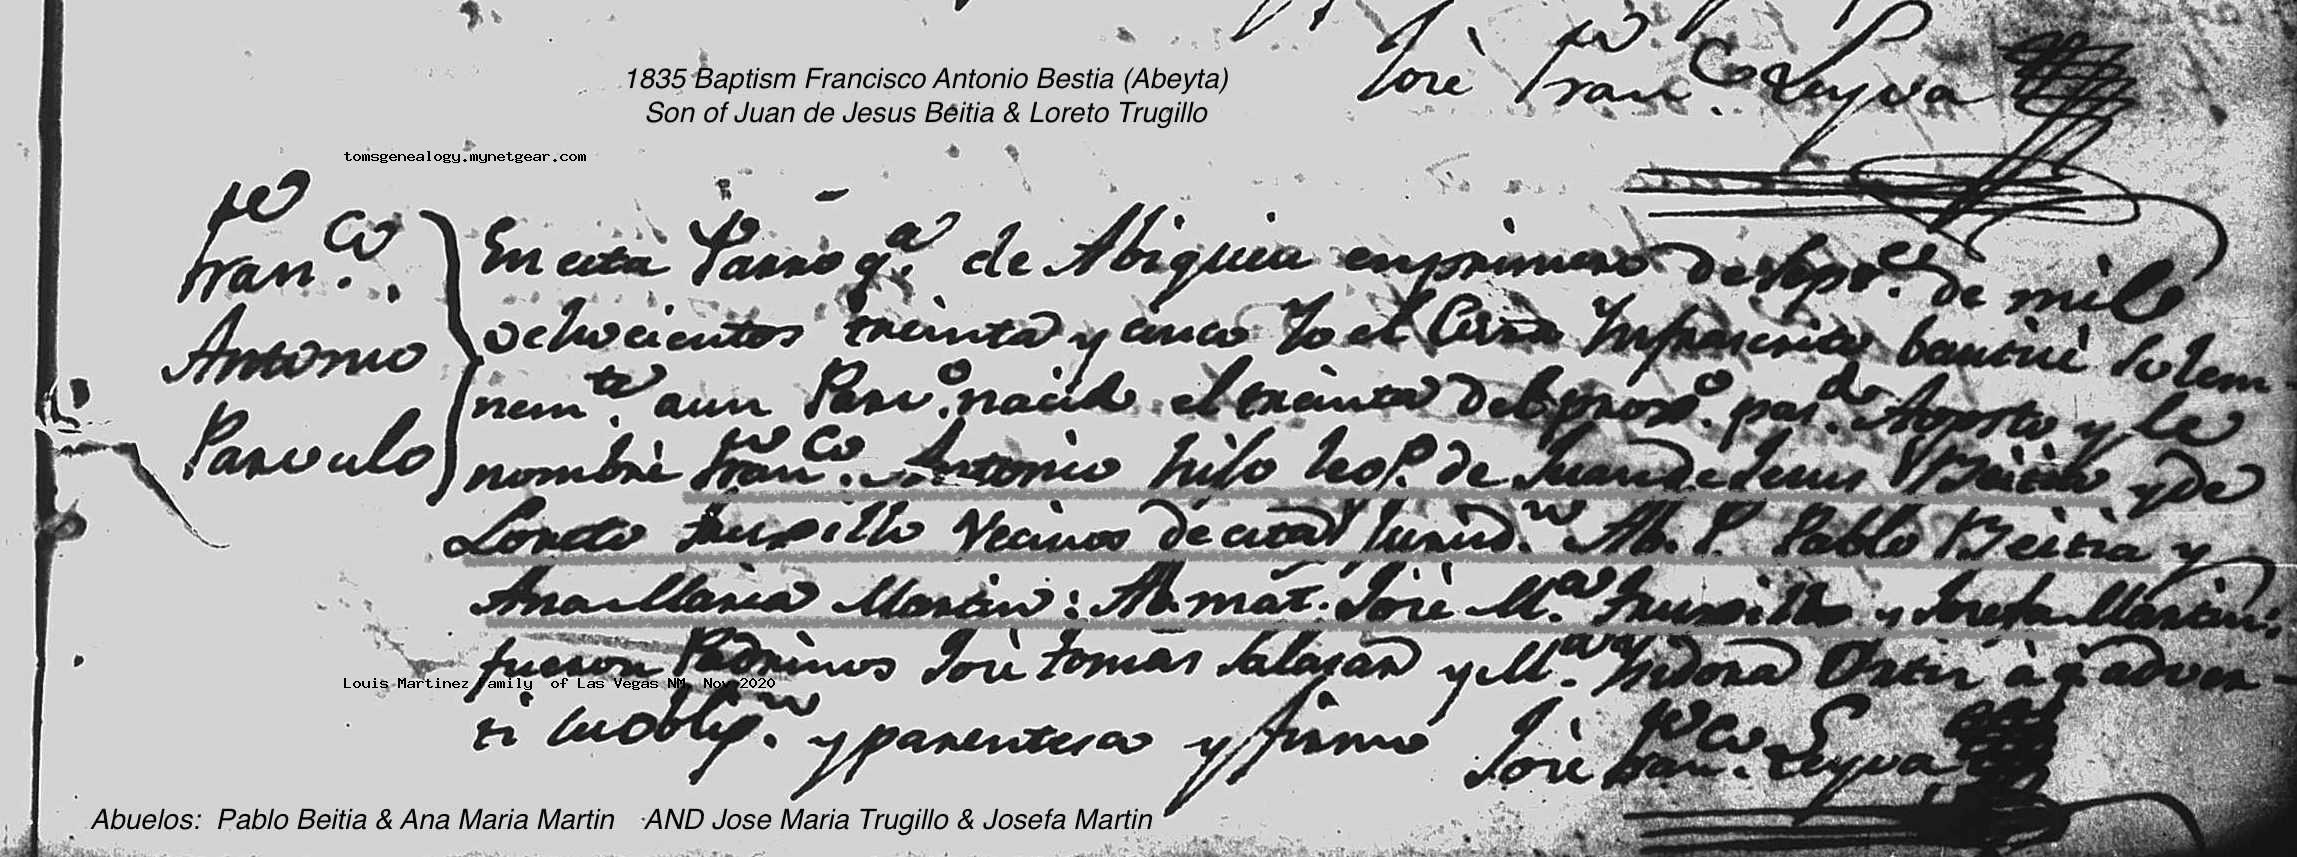 José Franco. Leyva
1835 Baptism Francisco Antonio Bestia (Abeyta)
Son of Juan de Jesus Beitia & Loreto Trugillo
tomsgenealogy.mynetgear.com
Franco.
Antonio
Parvulo
En esta Parroqa. de Abiquiu en primero de Sepre. de mil
ochocientos treinta y cinco Yo el Cura Infrascrito bautisé Solem-
nemte. a un Parvo. nacido el treinta del proxo. pasdo. Agosto y le
nombré Franco. Antonio hijo lego. de Juan de Jesus Beitia y de
Loreto Truxillo Vecinos de esta Jurisdn. Ab. P. Pablo Beitia y
Ana Maria Martin: Ab. mat. José Ma. Truxillo y Josefa Martin:
fueron Padrinos José Tomas Salasar y Ma. Isidora Ortis à qs. adver-
ti su obligon. y parentesco y firmo José Franco. Leyva
Louis Martinez Family of Las Vegas NM, Nov 2020
Abuelos: Pablo Beitia & Ana Maria Martin AND Jose Maria Trugillo & Josefa Martin